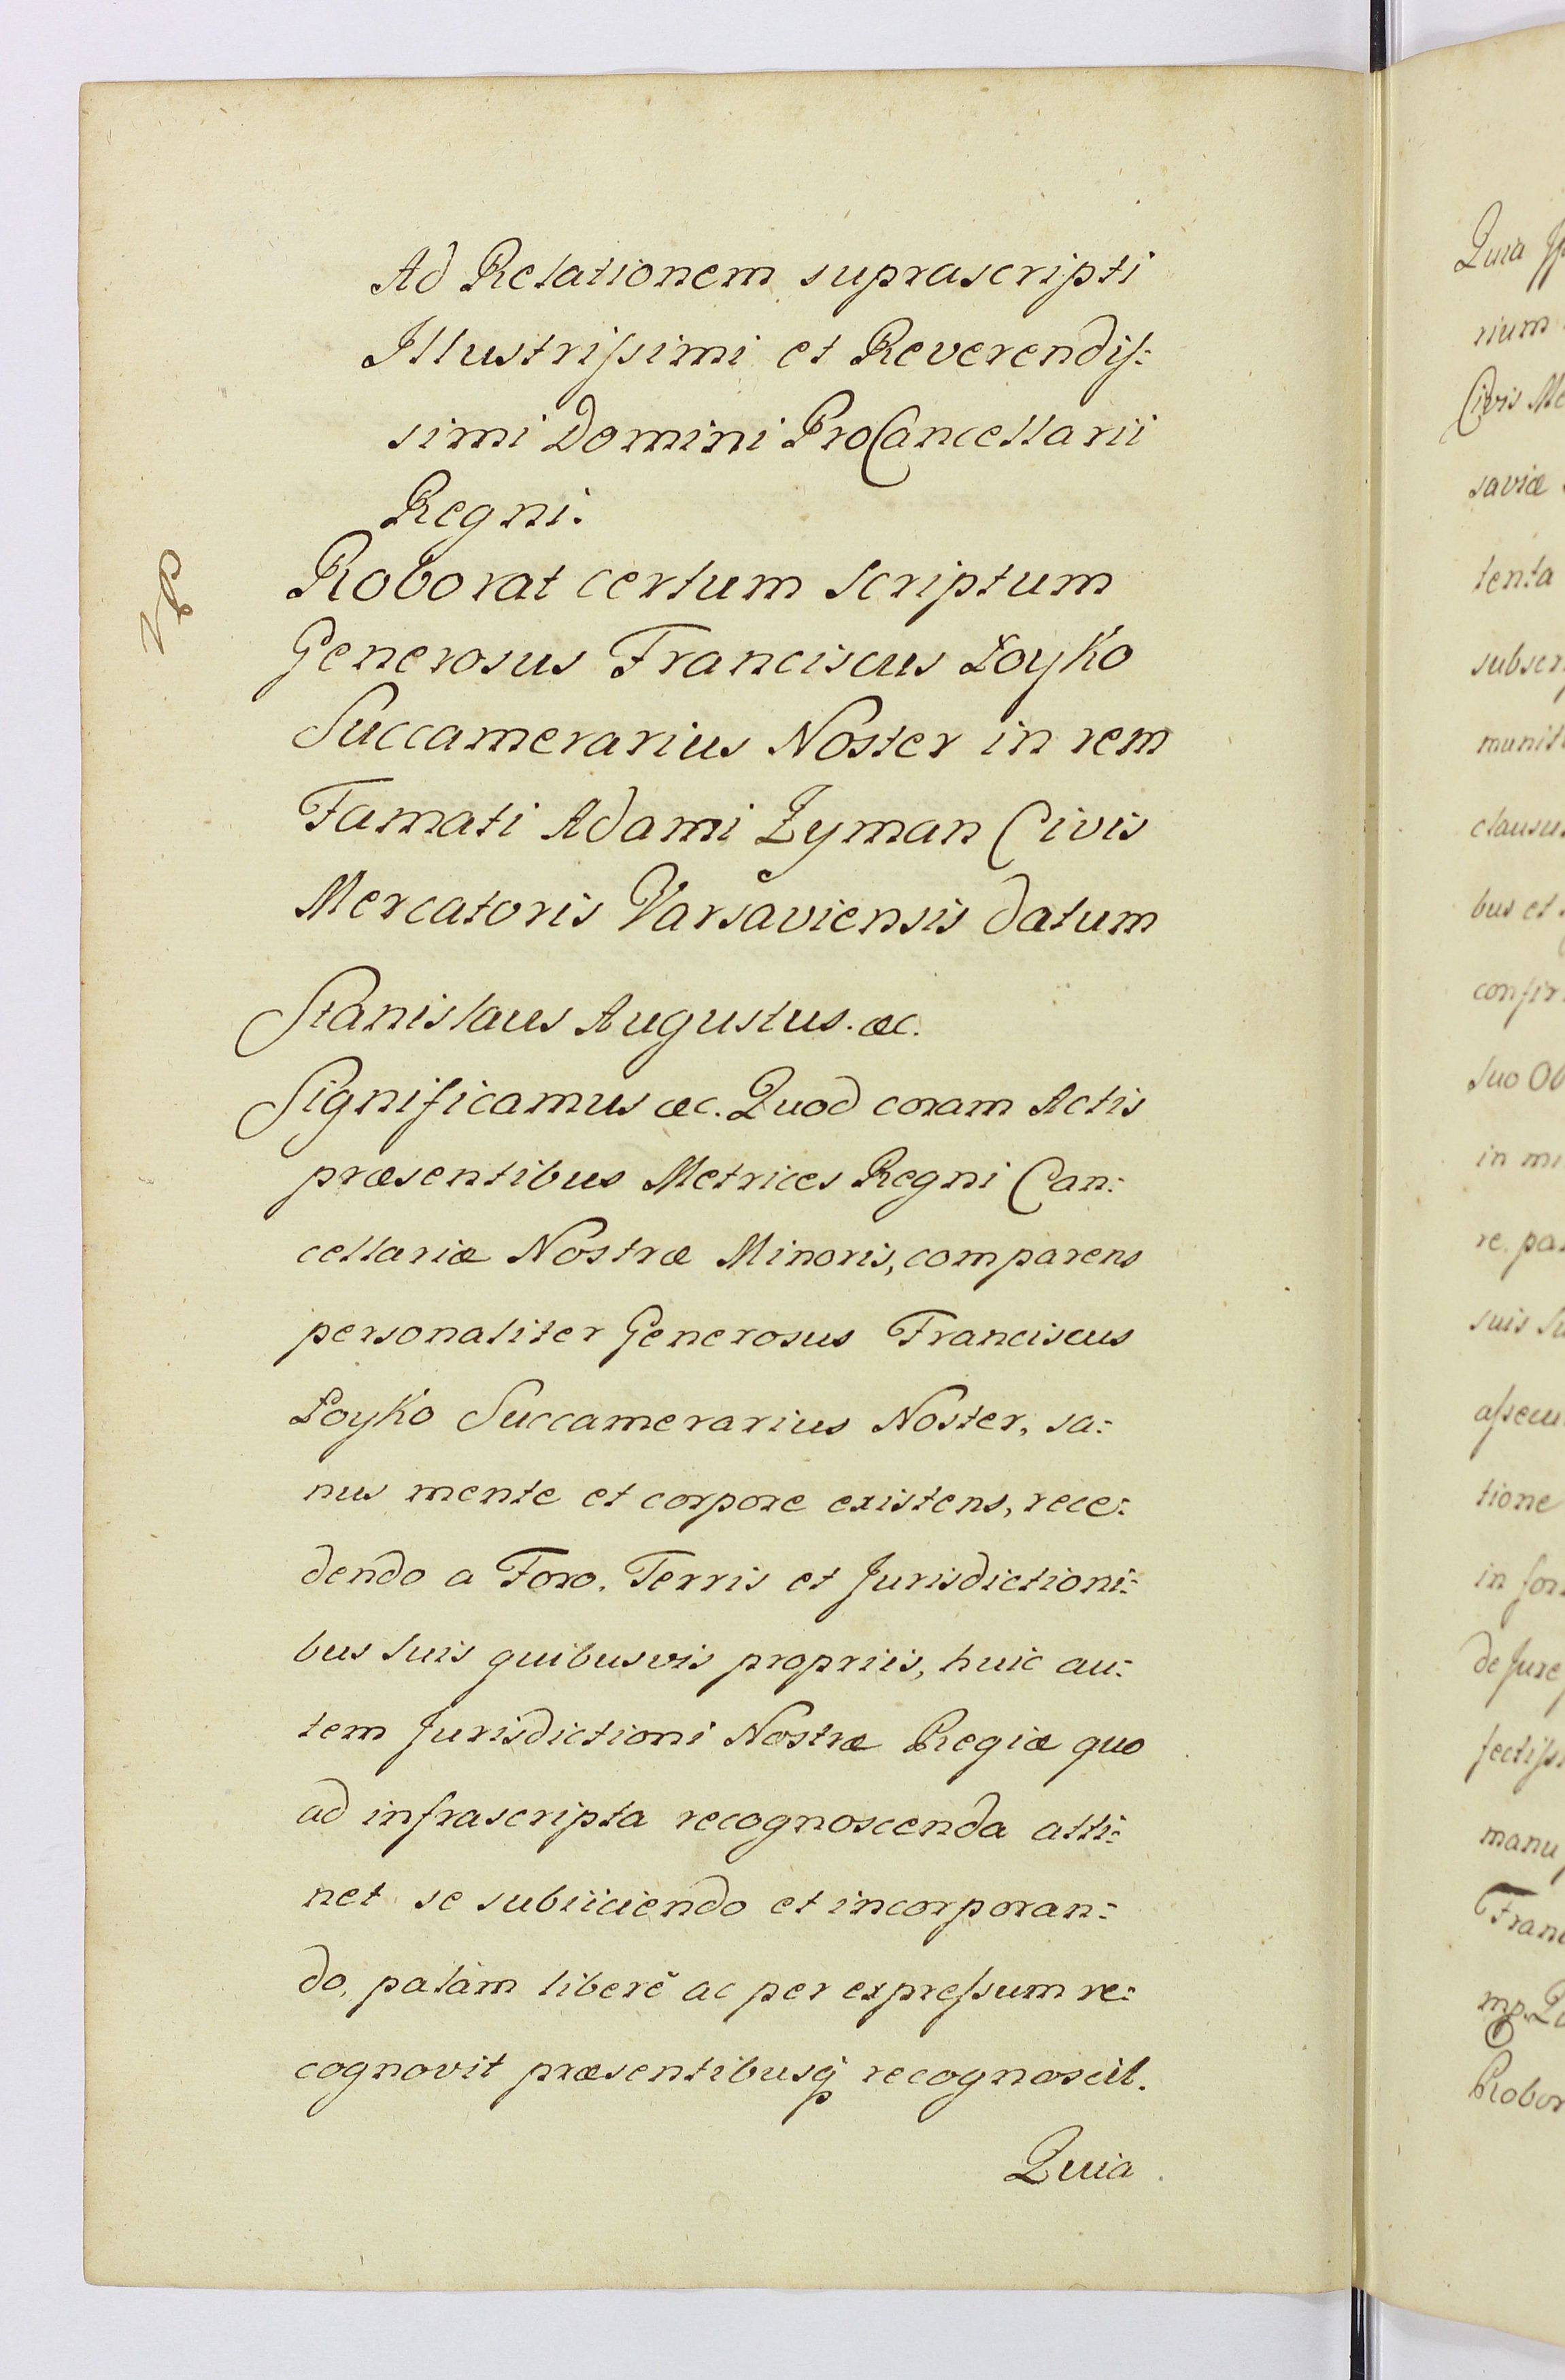 Ad Relationem suprascripti
Illustriſsimi et Reverendiſ:
simi Domini ProCancellarii
Regni.
Roborat certum scriptum
Generosus Franciscus Łoyko
Succamerarius Noster in rem
Famati Adami Zyman Civis
Mercatoris Varsaviensis datum
Stanislaus Augustus. &c.
Significamus &c. Quod coram Actis
præsentibus Metrices Regni Can:
cellariæ Nostræ Minoris, comparens
personaliter Generosus Franciscus
Łoyko Succamerarius Noster, sa:
nus mente et corpore existens, rece:
dendo a Foro, Terris et Jurisdictioni:
bus suis quibusvis propriis, huic au:
tem Jurisdictioni Nostræ Regiæ quo
ad infrascripta recognoscenda atti:
net se subiiciendo et incorporan:
do, palàm liberè ac per expreſsum re:
cognovit præsentibusq₃ recognoscit.
Quia
Quia
rium
Civis Me
saviæ
tenta
subscr
munit
clausu
bus et
confir
suo Ob
in mi
re pa
suis su
aſsecu
tione
in for
de Jure
fectiſsi
manu
Franc
mp. Qu
Robor